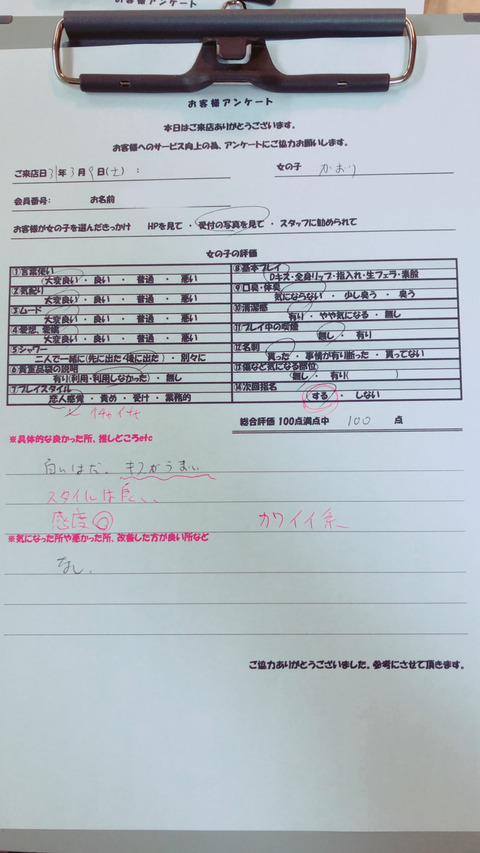 お客様アンケート
お客様アンケート
本日はご来店ありがとうございます。
お客様へのサービス向上の為、アンケートにご協力お願いします。
ご来店日 31年 3月 9日(土) : 女の子 かおり
会員番号: お名前
お客様が女の子を選んだきっかけ HPを見て ・ 受付の写真を見て ・ スタッフに勧められて
女の子の評価
1 言葉使い
大変良い ・ 良い ・ 普通 ・ 悪い
2 気配り
大変良い ・ 良い ・ 普通 ・ 悪い
3 ムード
大変良い ・ 良い ・ 普通 ・ 悪い
4 愛想、愛嬌
大変良い ・ 良い ・ 普通 ・ 悪い
5 シャワー
二人で一緒に(先に出た・後に出た) ・ 別々に
6 貴重品袋の説明
有り(利用・利用しなかった) ・ 無し
7 プレイスタイル
恋人感覚 ・ 責め ・ 受け ・ 業務的
イチャイチャ
8 基本プレイ
Dキス・全身リップ・指入れ・生フェラ・素股
9 口臭・体臭
気にならない ・ 少し臭う ・ 臭う
10 清潔感
有り ・ やや気になる ・ 無し
11 プレイ中の喫煙
無し ・ 有り
12 名刺
貰った ・ 事情が有り断った ・ 貰ってない
13 傷など気になる部位
無し ・ 有り( )
14 次回指名
する ・ しない
総合評価 100点満点中 100 点
※具体的な良かった所、推しどころetc
白いはだ、キスがうまい
スタイルは良、、
感度◎ カワイイ系
※気になった所や悪かった所、改善した方が良い所など
なし、
ご協力ありがとうございました。参考にさせて頂きます。